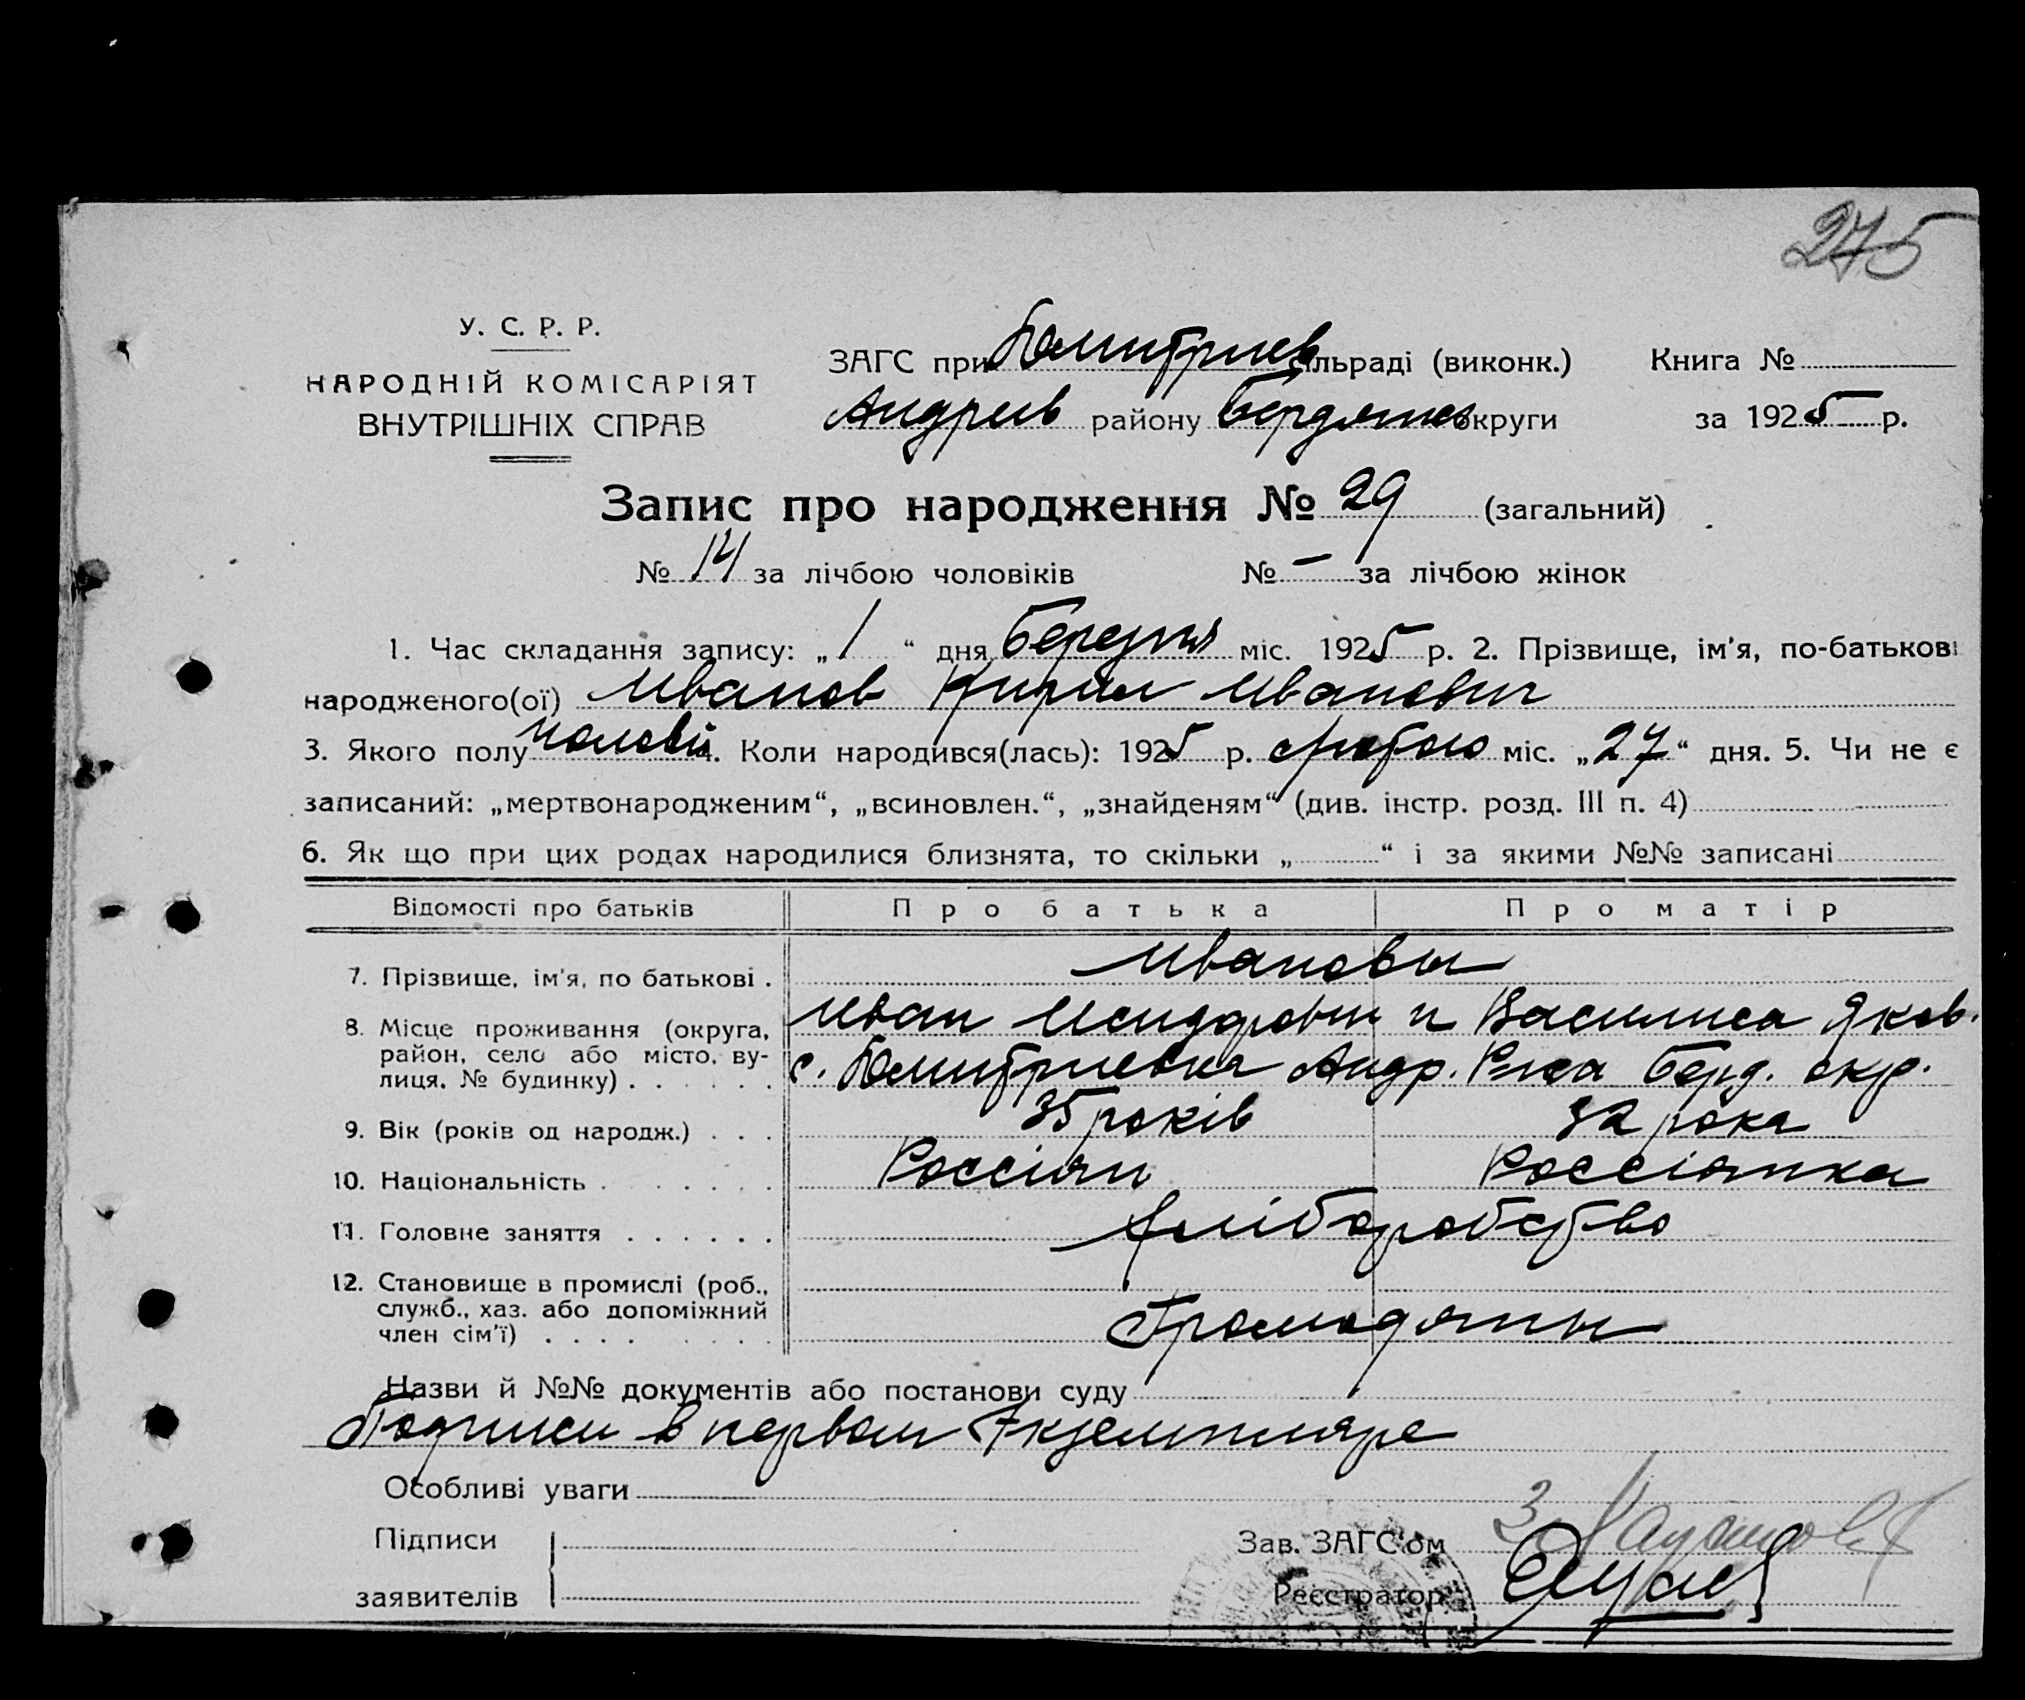 275
У. С. Р. Р.
НАРОДНІЙ КОМІСАРІЯТ
ВНУТРІШНІХ СПРАВ
ЗАГС при Дмитриев сільраді (виконк.) Книга №
Андриев району Бердянськ округи за 1925 р.
Запис про народження № 29 (загальний)
№ 14 за лічбою чоловіків № – за лічбою жінок
1. Час складання запису: „1“ дня березня міс. 1925 р. 2. Прізвище, ім'я, по-батькові
народженого(ої) Иванов Кирил Иванович
3. Якого полу чоловіч 4. Коли народився(лась): 1925 р. лютого міс. „27“ дня. 5. Чи не є
записаний: „мертвонародженим“, „всиновлен.“, „знайденям“ (див. інстр. розд. III п. 4)
6. Як що при цих родах народилися близнята, то скільки „ “ і за якими №№ записані
Відомості про батьків Про батька Про матір
7. Прізвище, ім'я, по батькові . Ивановы
8. Місце проживання (округа, Иван Исидорович и Василиса Яков.
район, село або місто, ву- с. Дмитриевка Андр. Р-на Берд. окр.
лиця, № будинку)
9. Вік (років од народж.) 35 років 32 рока
10. Національність Россіян Россіянка
11. Головне заняття Хліборобство
12. Становище в промислі (роб.,
служб., хаз. або допоміжний Громадяни
член сім'ї)
Назви й №№ документів або постанови суду
Подписи в первом Екземпляре
Особливі уваги
Підписи Зав. ЗАГС'ом
заявителів Реєстратор